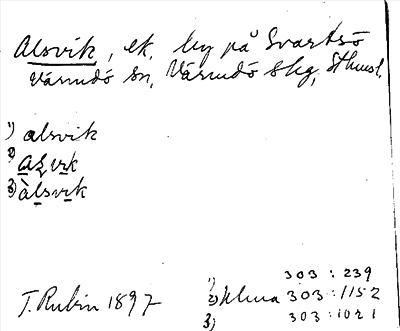 Alsvik, ek, by på Svartsö
Värmdö sn, Värmdö skg, Sthmsl.
1) alsvik
2) aʂvɩk
3) àlsvɩk
303 : 239
T. Rubin 1897 2) 303 : 1152
3) 303 : 1021